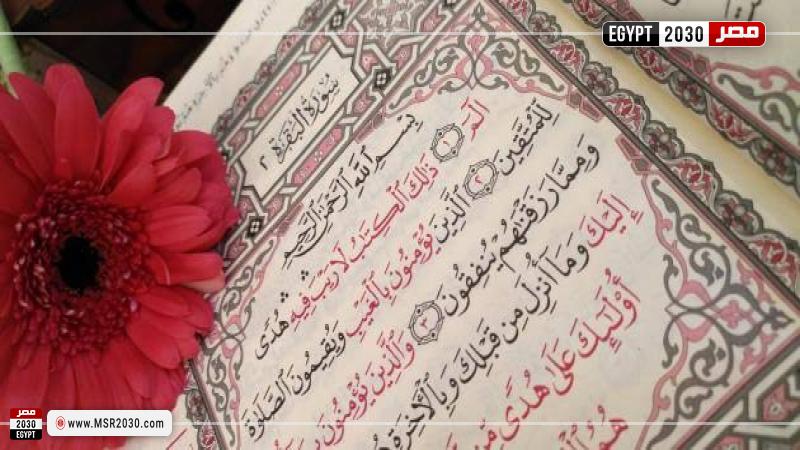 EGYPT 2030 مصر
سُورَةُ البَقَرَةِ ٢
بِسْمِ ٱللَّهِ ٱلرَّحْمَٰنِ ٱلرَّحِيمِ
الٓمٓ ١ ذَٰلِكَ ٱلْكِتَٰبُ لَا رَيْبَ فِيهِ هُدًى
لِّلْمُتَّقِينَ ٢ ٱلَّذِينَ يُؤْمِنُونَ بِٱلْغَيْبِ وَيُقِيمُونَ ٱلصَّلَوٰةَ
وَمِمَّا رَزَقْنَٰهُمْ يُنفِقُونَ ٣ وَٱلَّذِينَ يُؤْمِنُونَ
إِلَيْكَ وَمَآ أُنزِلَ مِن قَبْلِكَ وَبِٱلْأَخِرَةِ
أُوْلَٰٓئِكَ عَلَىٰ هُدًى مِّن
هُمُ
مصر
2030
EGYPT
www.MSR2030.com